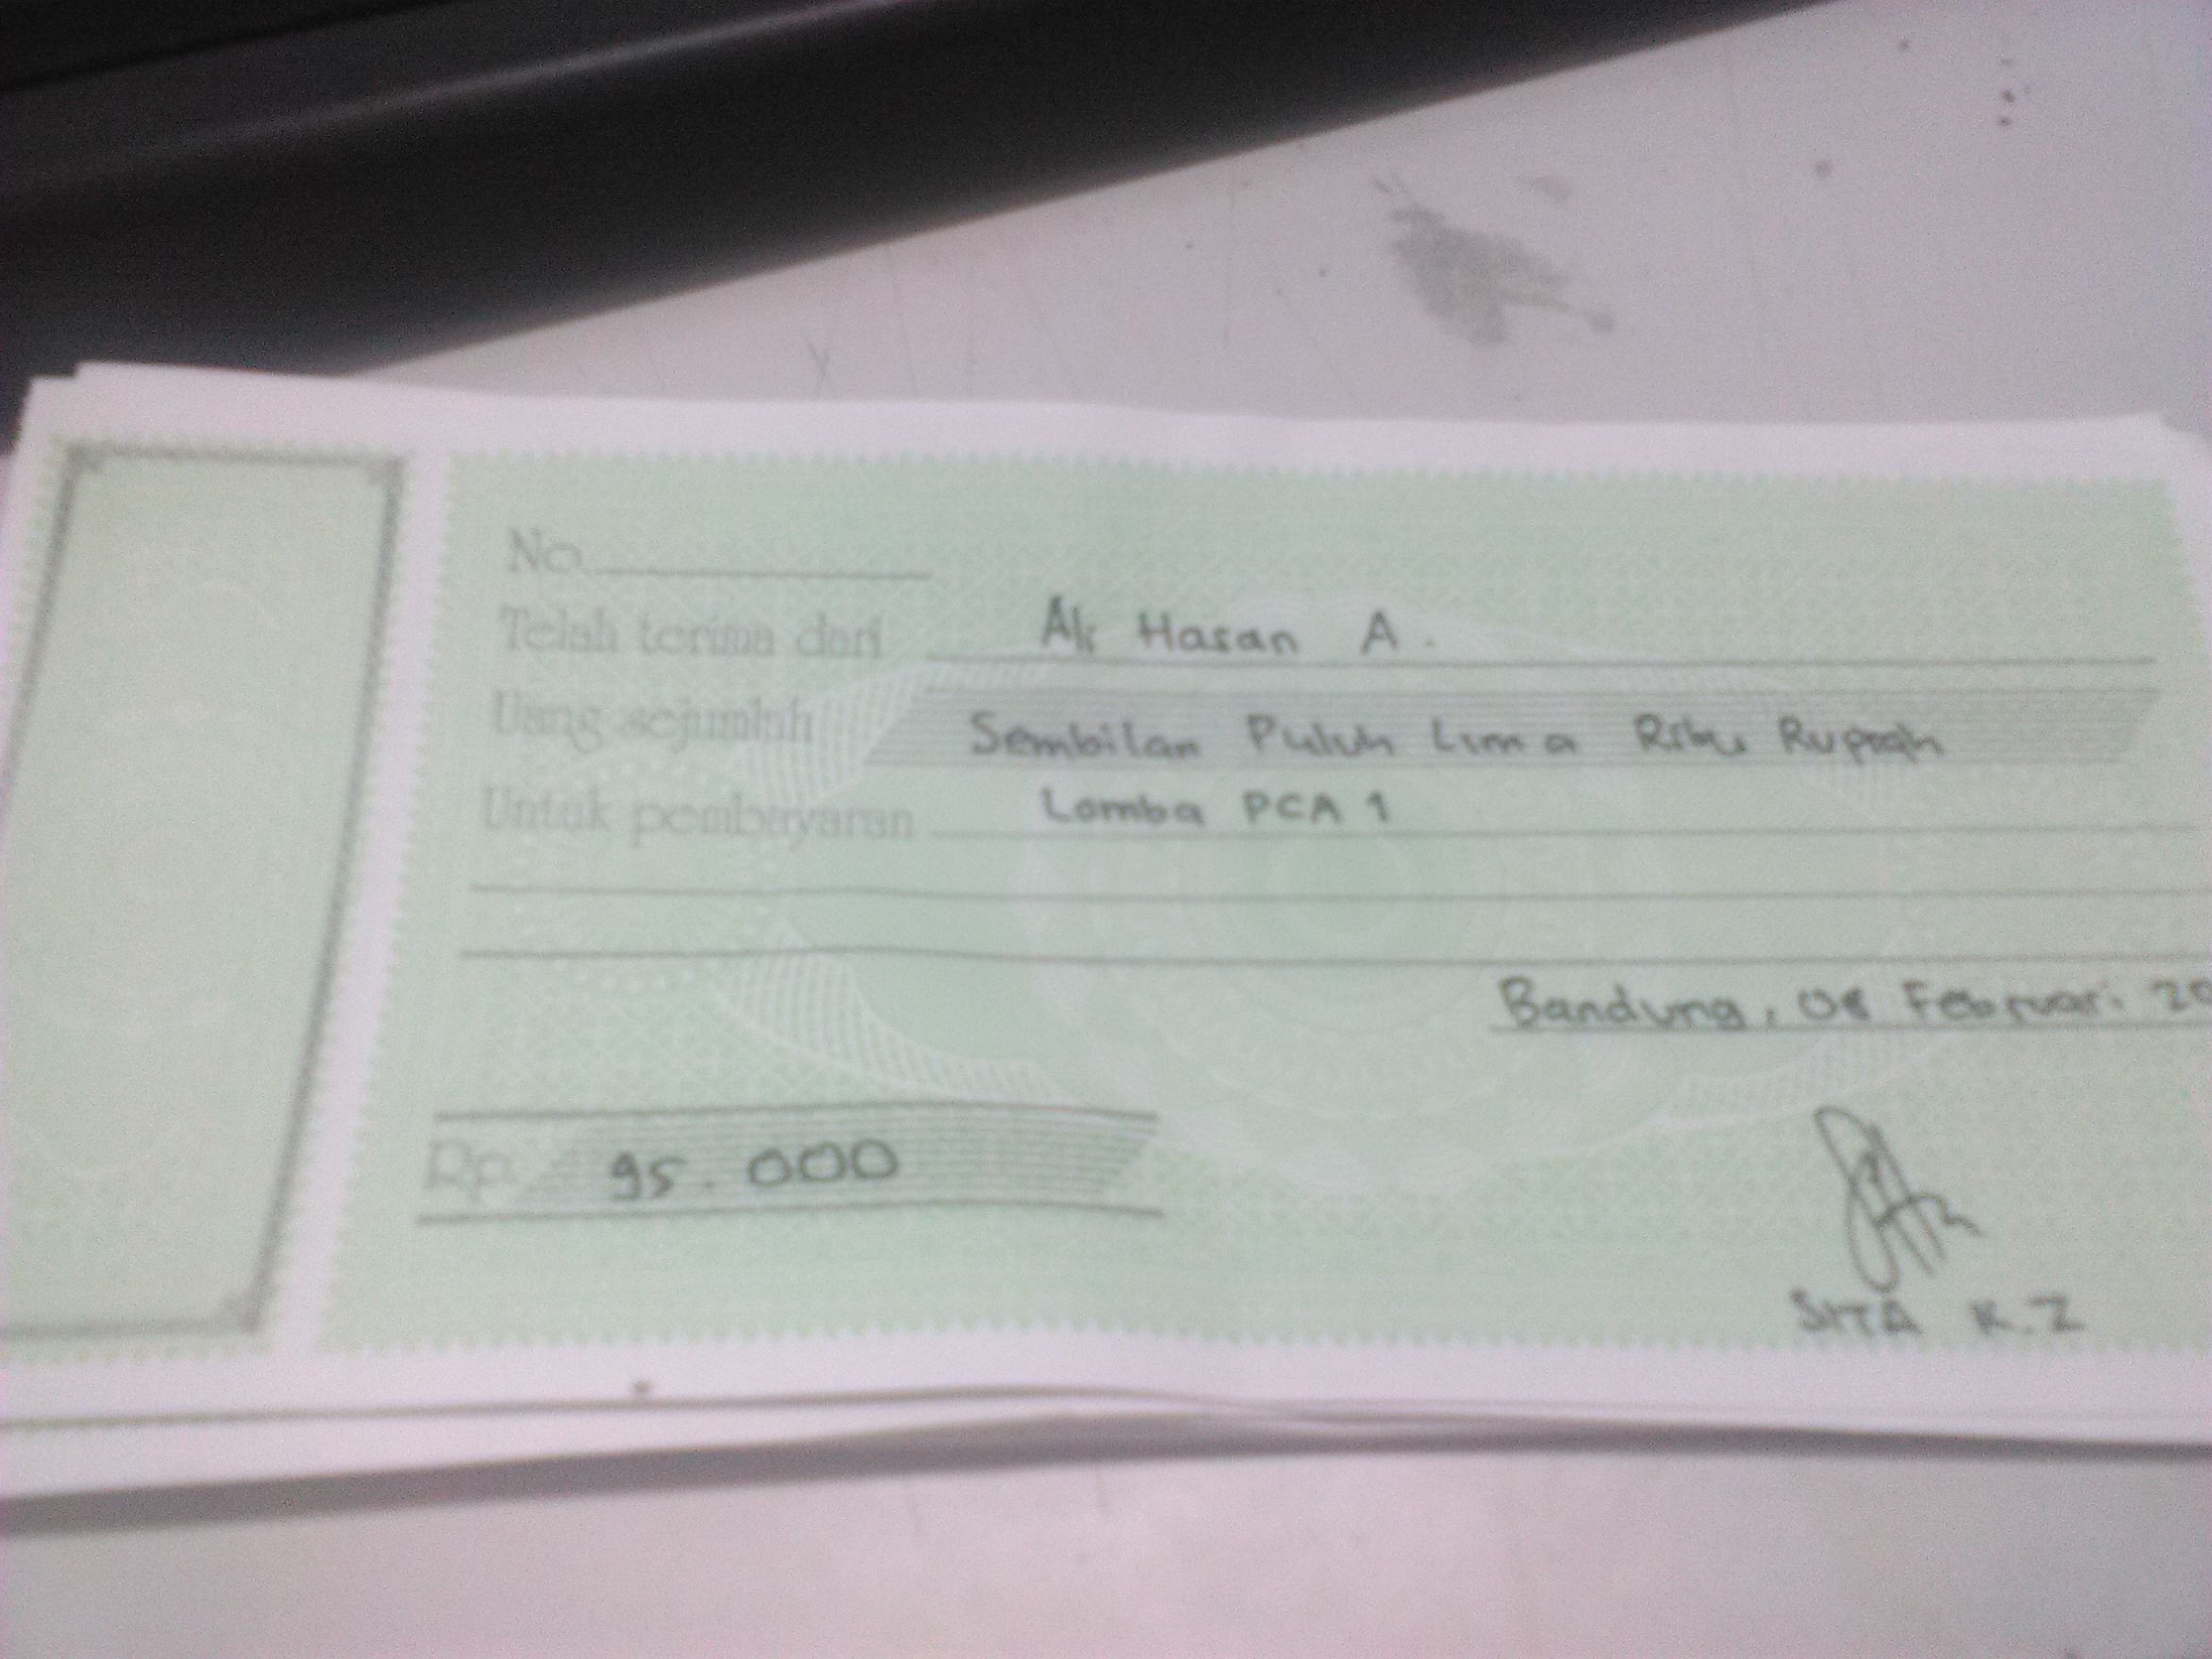 No.
Telah terima dari Ali Hasan A.
Uang sejumlah Sembilan Puluh Lima Ribu Rupiah
Untuk pembayaran Lomba PCA 1
Bandung, 08 Februari 20
Rp. 95.000
SITA K.Z